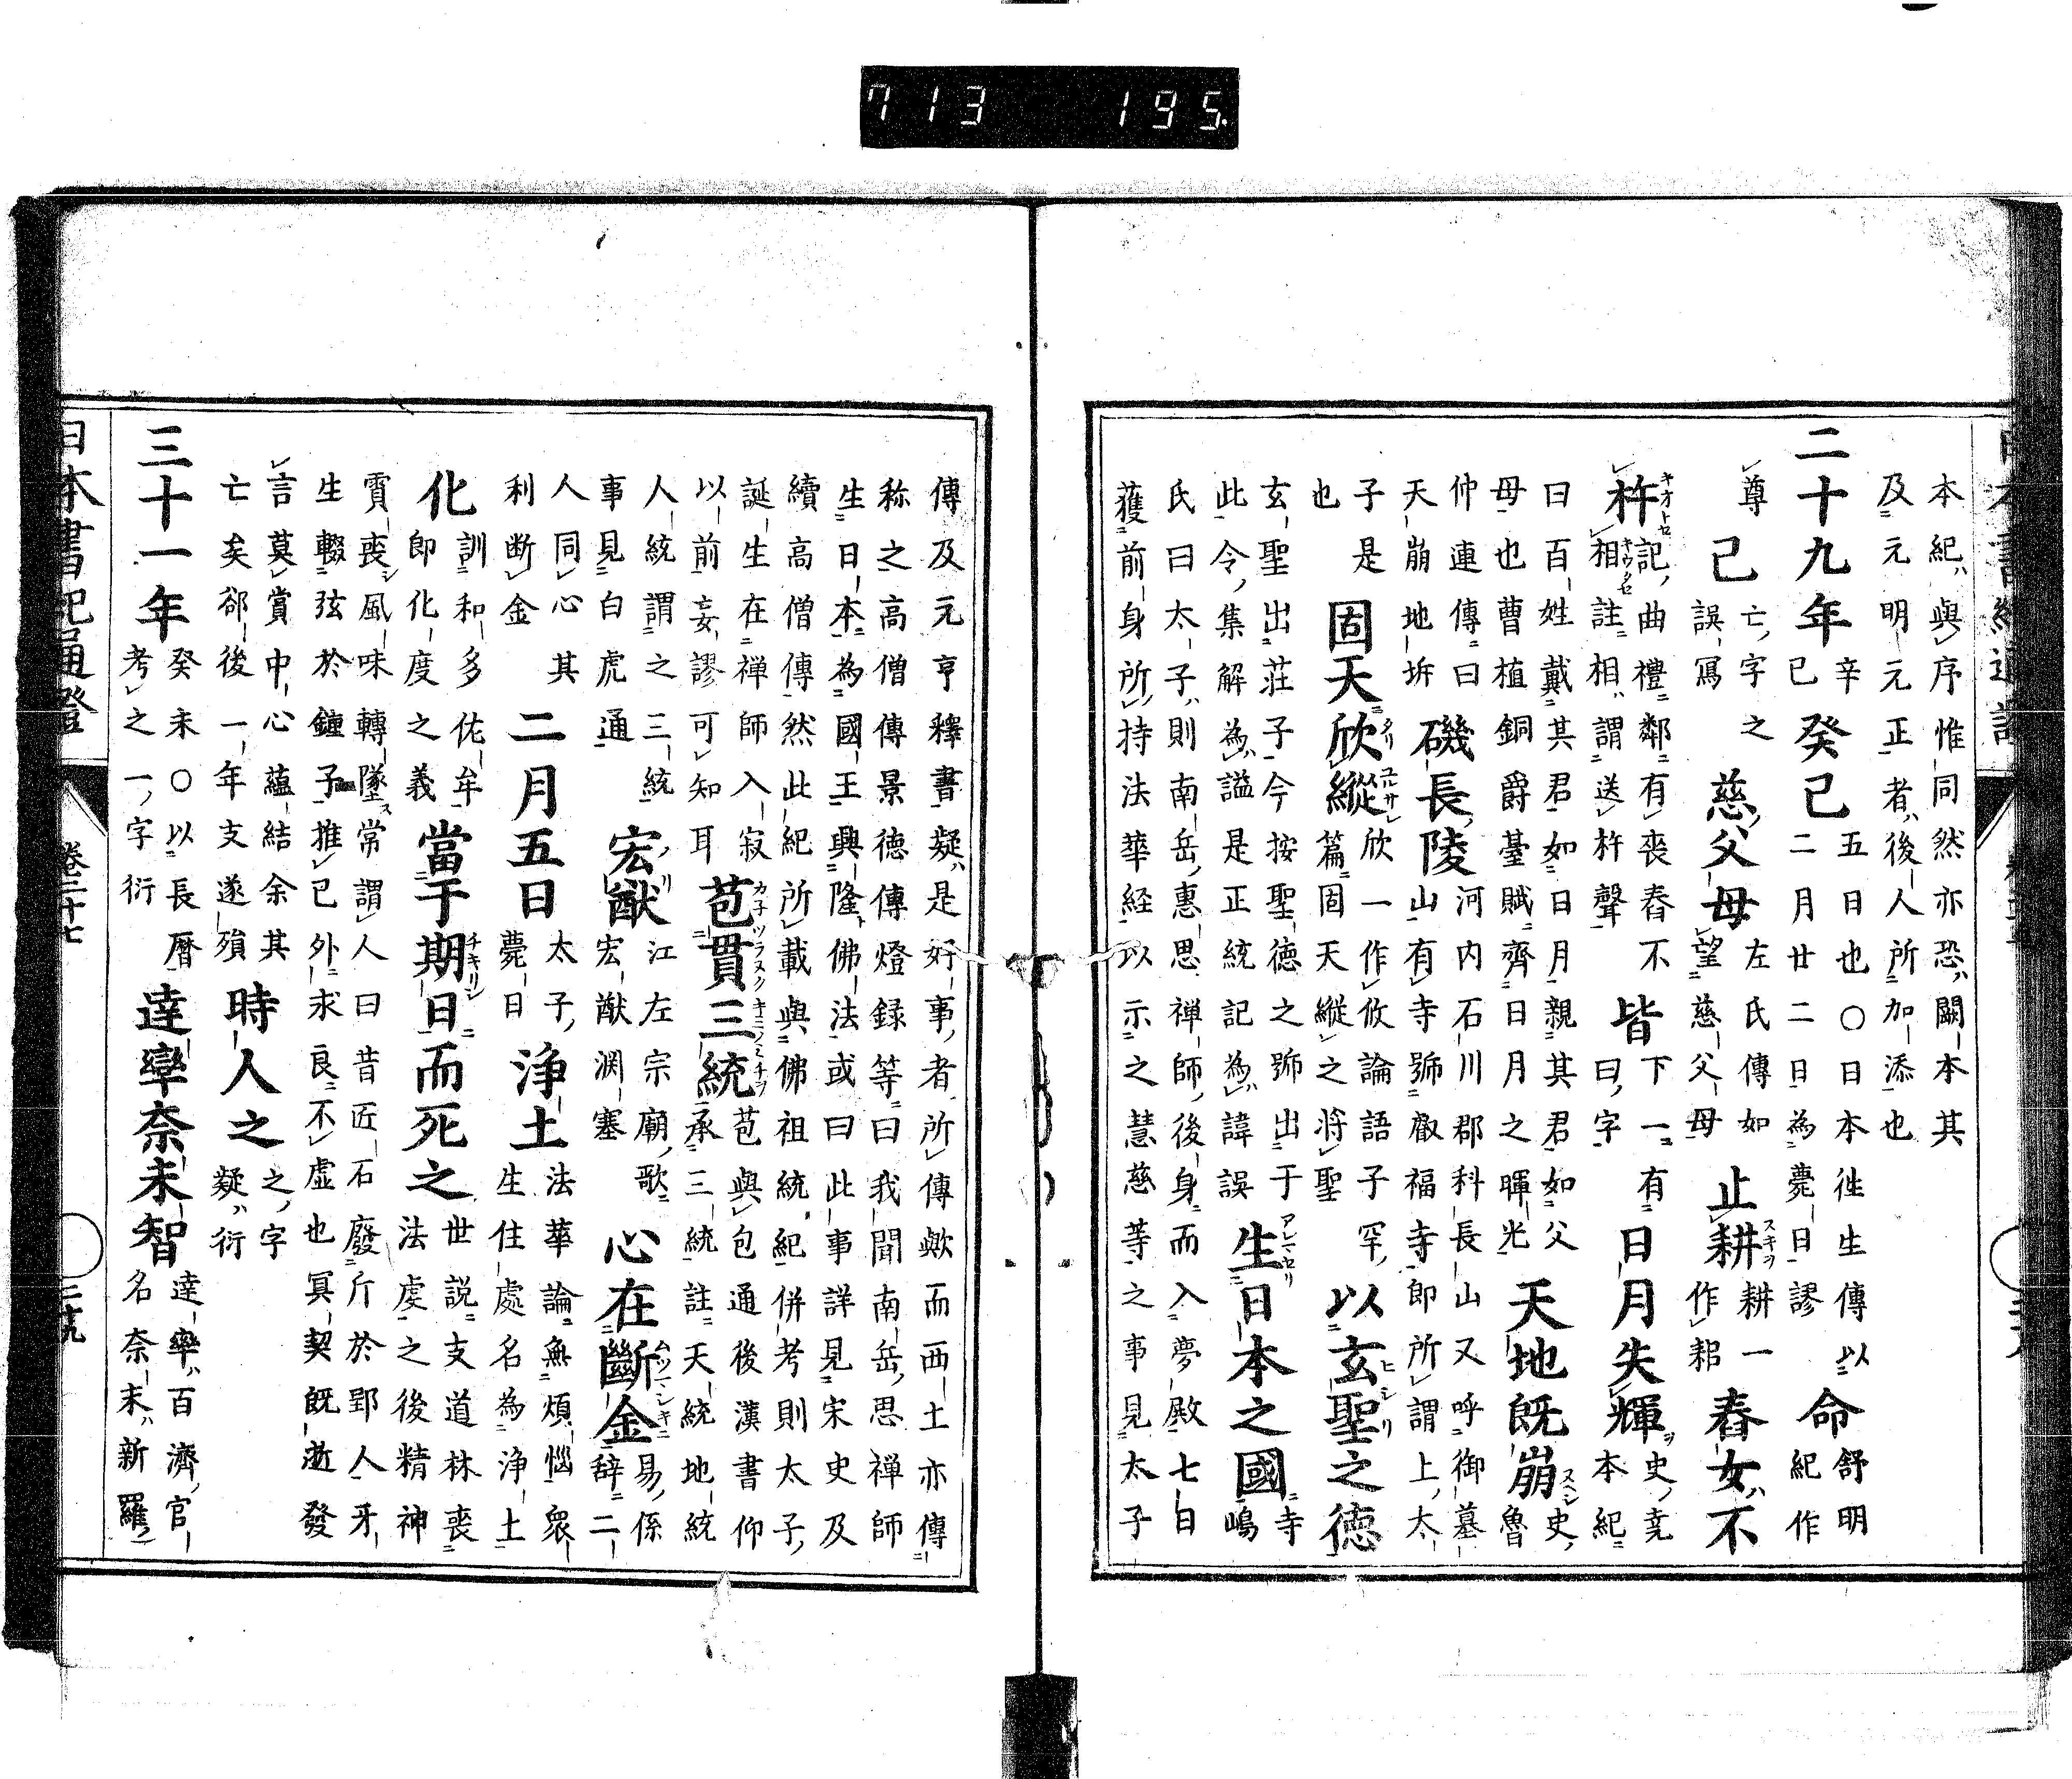 本紀ハ與序惟同然亦恐ハ闕本其
及元明元正者ハ後人所加添也
二十九年
辛
巳
癸巳
五日也〇日本徃生傳以
二月廿二日為薨日謬
命
舒明
紀作
尊
己
亡字之
誤寫
慈父母
左氏傳如
望慈父母
止耕
耕一
作耜
舂女不
杵
記曲禮鄰有喪舂不
相註相謂送杵聲
皆
下一有
曰字
日月失輝
史尭
本紀
曰百姓戴其君如日月親其君如父
母也曹植銅爵臺賦齊日月之暉光
天地既崩
史
魯
仲連傳曰
天崩地坼
磯長陵
河内石川郡科長山又呼御墓
山有寺號叡福寺即所謂上太
子是
也
固天欣縱
欣一作攸論語子罕
篇固天縱之将聖
以玄聖之德
玄聖出荘子今按聖徳之號出于
此令集解為謚是正統記為諱誤
生日本之國
寺
嶋
氏曰太子則南岳惠思禅師後身而入夢殿七日
獲前身所持法華経以示之慧慈等之事見太子
傳及元亨釋書疑ハ是好事者所傳歟而西土亦傳
称之高僧傳景徳傳燈録等曰我聞南岳思禅師
生日本為國王興隆佛法或曰此事詳見宋史及
續高僧傳然此紀所載與佛祖統紀併考則太子
誕生在禅師入寂
以前妄謬可知耳
苞貫三統
苞與包通後漢書仰
承三統註天統地統
人統謂之三統
事見白虎通
宏猷
江左宗廟歌
宏猷淵塞
心在斷金
易係
辞二
人同心其
利断金
二月五日
太子
薨日
浄土
法華論無煩惱衆
生住處名為浄土
化
訓和多佐牟
即化度之義
當于期日而死之
世説支道林喪
法虔之後精神
霣喪風味轉墜常謂人曰昔匠石廢斤於郢人牙
生輟弦於鐘子推已外求良不虚也冥契既逝發
言莫賞中心蘊結余其
亡矣郤後一年支遂殞
時人之
之字
疑ハ衍
三十一年
癸未〇以長暦
考之一字衍
達率奈末智
達率ハ百濟官
名奈末ハ新羅
日本書紀通證
卷二十七